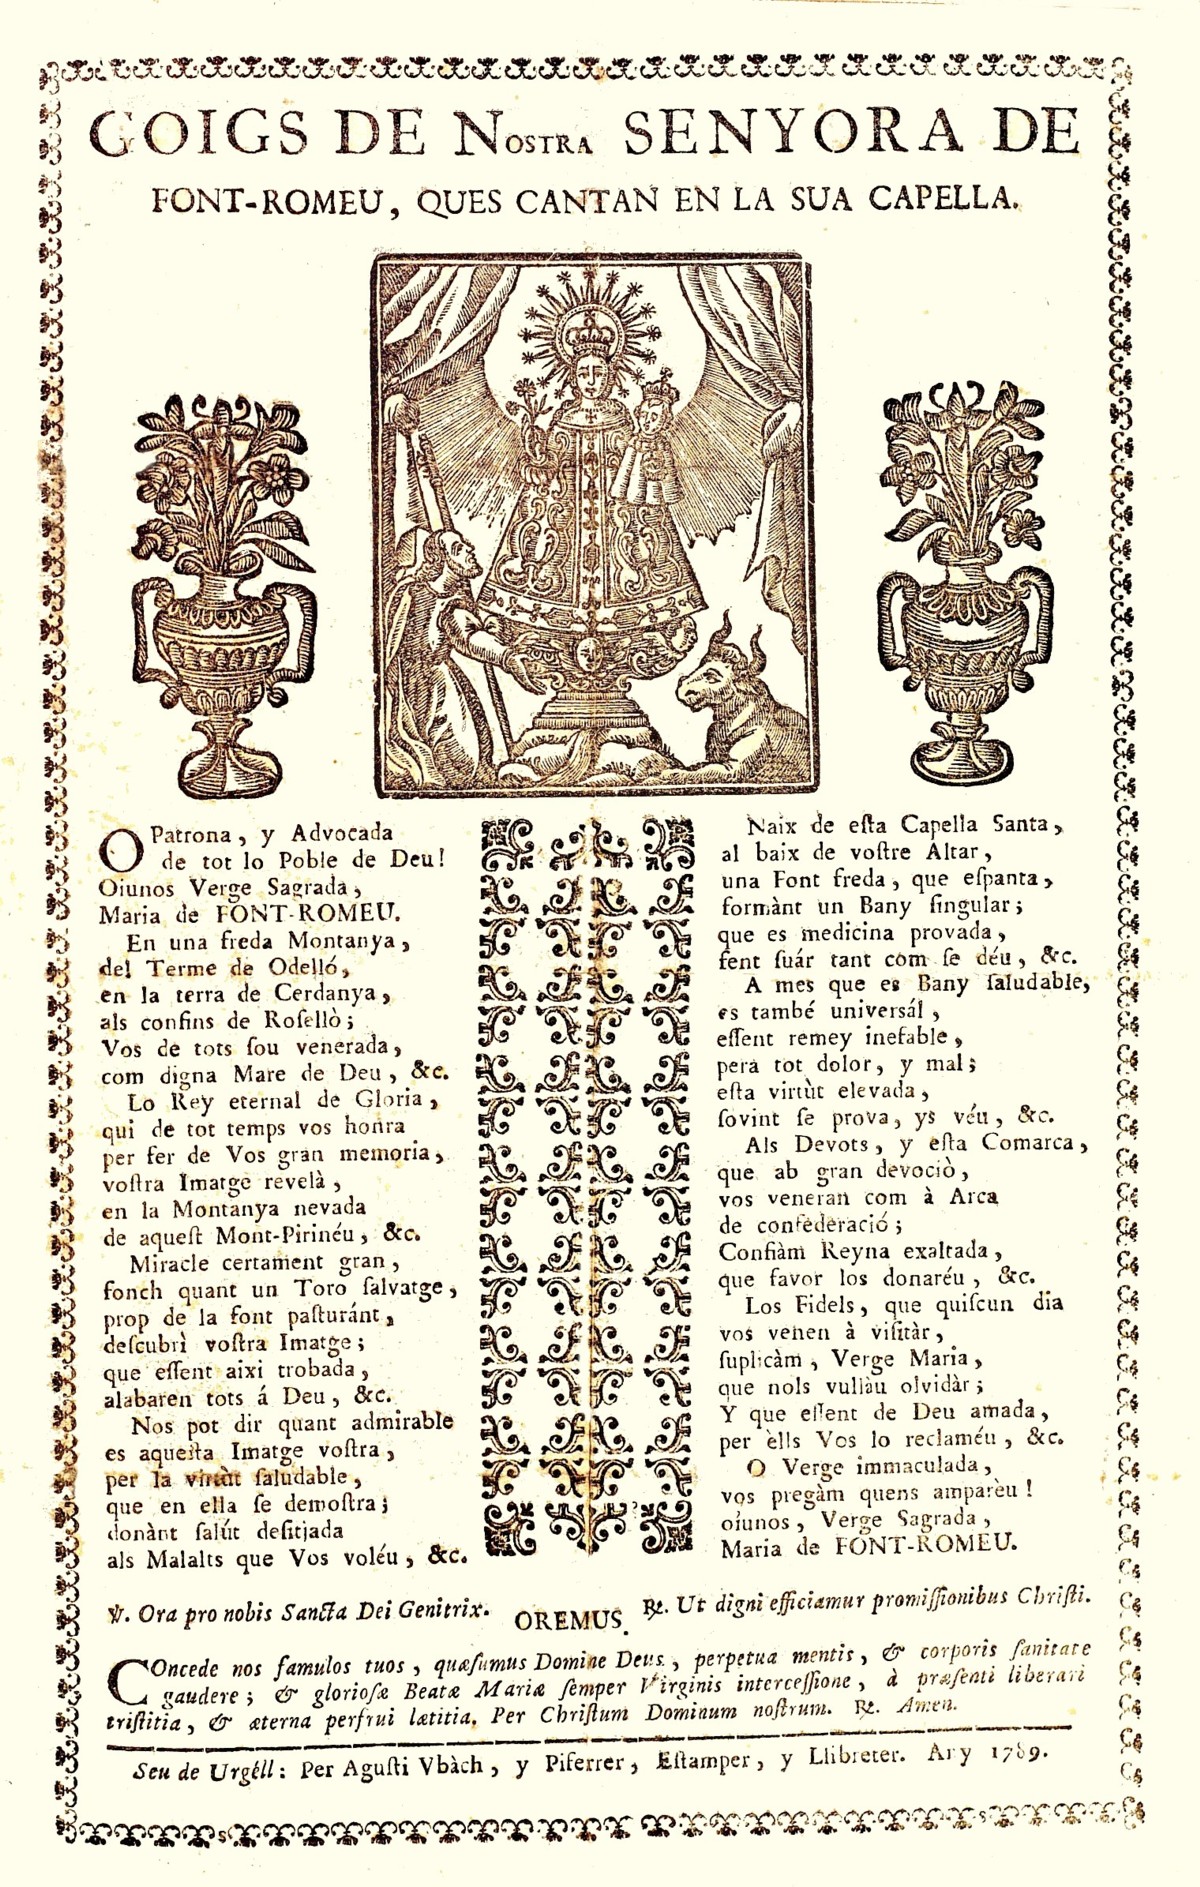 GOIGS DE NOSTRA SENYORA DE
FONT-ROMEU, QUES CANTAN EN LA SUA CAPELLA.
O Patrona, y Advocada
de tot lo Poble de Deu!
Oiunos Verge Sagrada,
Maria de FONT-ROMEU.
En una freda Montanya,
del Terme de Odelló,
en la terra de Cerdanya,
als confins de Roſellò;
Vos de tots ſou venerada,
com digna Mare de Deu, &c.
Lo Rey eternal de Gloria,
qui de tot temps vos honra
per fer de Vos gran memoria,
voſtra Imatge revelà,
en la Montanya nevada
de aqueſt Mont-Pirinéu, &c.
Miracle certament gran,
fonch quant un Toro ſalvatge,
prop de la font paſturánt,
deſcubrì voſtra Imatge;
que eſſent aixi trobada,
alabaren tots á Deu, &c.
Nos pot dir quant admirable
es aqueſta Imatge voſtra,
per la virtùt ſaludable,
que en ella ſe demoſtra;
donànt ſalút deſitjada
als Malalts que Vos voléu, &c.
Naix de eſta Capella Santa,
al baix de voſtre Altar,
una Font freda, que eſpanta,
formànt un Bany ſingular;
que es medicina provada,
fent ſuár tant com ſe déu, &c.
A mes que es Bany ſaludable,
es també universál,
eſſent remey inefable,
pera tot dolor, y mal;
eſta virtùt elevada,
ſovint ſe prova, ys véu, &c.
Als Devots, y eſta Comarca,
que ab gran devociò,
vos veneran com à Arca
de confederació;
Confiàm Reyna exaltada,
que favor los donaréu, &c.
Los Fidels, que quiſcun dia
vos venen à viſitàr,
ſuplicàm, Verge Maria,
que nols vullàu olvidàr;
Y que eſſent de Deu amada,
per èlls Vos lo reclaméu, &c.
O Verge immaculada,
vos pregàm quens ampareu!
oíunos, Verge Sagrada,
Maria de FONT-ROMEU.
℣. Ora pro nobis Sancta Dei Genitrix. ℟. Ut digni efficiamur promiſſionibus Chriſti.
OREMUS.
COncede nos famulos tuos, quæſumus Domine Deus, perpetua mentis, & corporis ſanitate
gaudere; & glorioſæ Beatæ Mariæ ſemper Virginis interceſſione, à præſenti liberari
triſtitia, & æterna perfrui lætitia. Per Chriſtum Dominum noſtrum. ℟. Amen.
Seu de Urgéll: Per Aguſti Vbàch, y Piferrer, Eſtamper, y Llibreter. Any 1789.